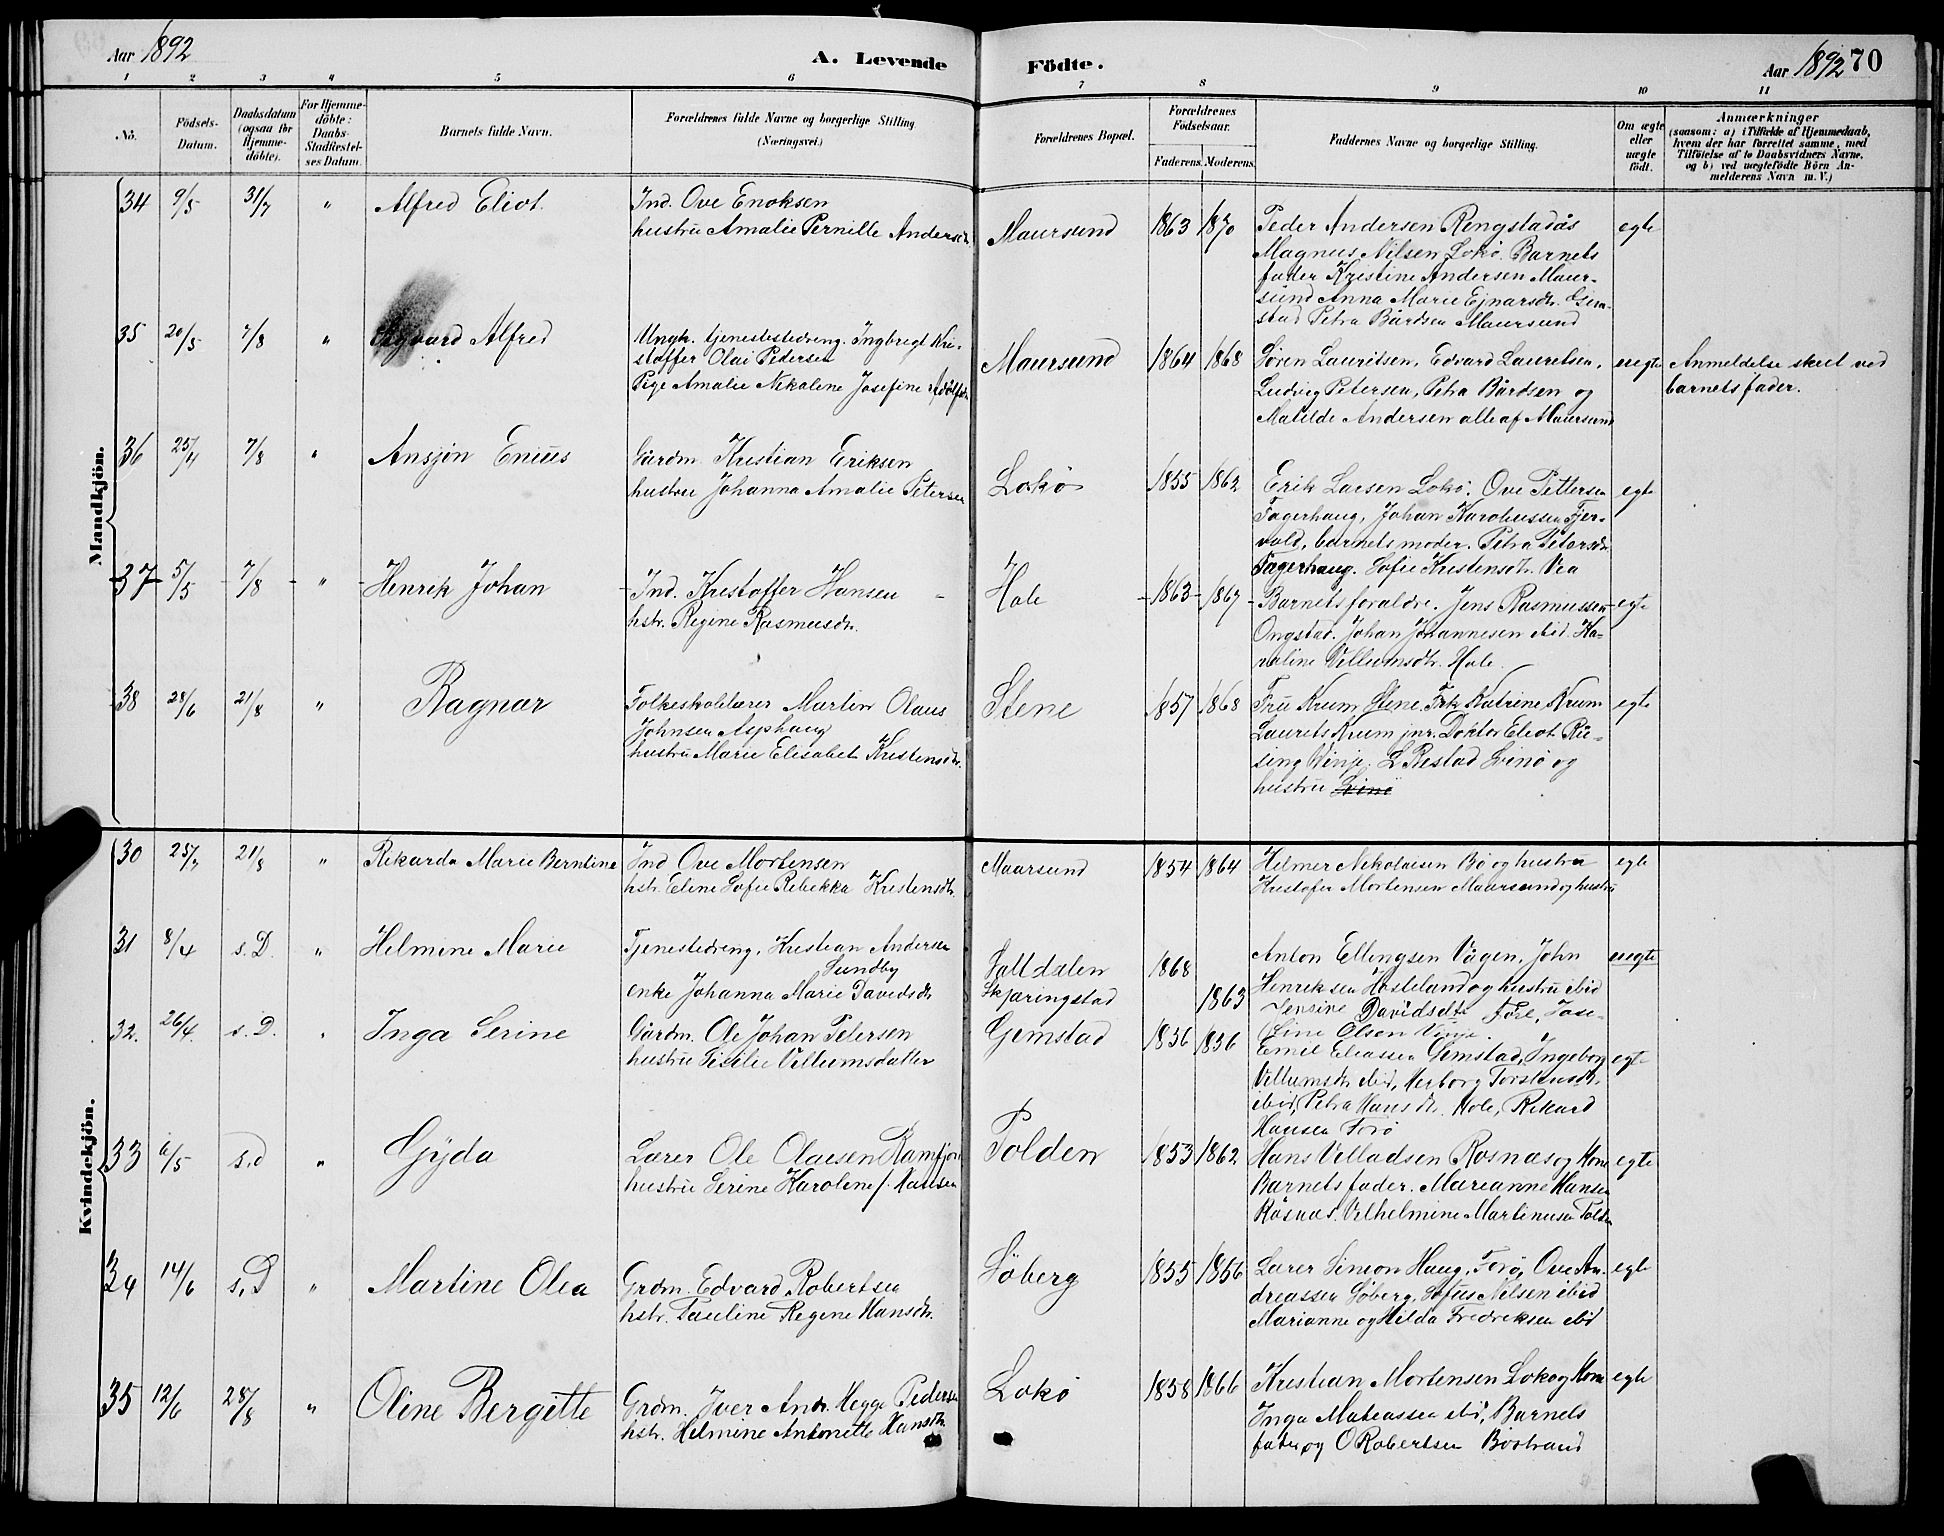 Aar 1892
A. Levende Födte.
Aar 1892 70
1 2 3 4 5 6 7 8 9 10 11
No.
Födsels-Datum.
Daabsdatum (ogsaa for Hjemme-döbte).
For Hjemme-döbte: Daabs-Stadfæstel-ses Datum.
Barnets fulde Navn.
Forældrenes fulde Navne og borgerlige Stilling (Næringsvei.)
Forældrenes Bopæl.
Forældrenes Födselsaar.
Faderens. Moderens.
Faddernes Navne og borgerlige Stilling.
Om ægte eller uægte födt.
Anmærkninger
(saasom: a) i Tilfælde af Hjemmedaab,
hvem der har forrettet samme, med
Tilföielse af to Daabsvidners Navne,
og b) ved uægtefödte Börn An-
melderens Navn m. V.)
Mandkjön.
34 9/5 31/7 " Alfred Eliot.
Ind. Ove Enoksen
hustru Amalie Pernille Andersdr.
Maursund 1863 1870
Peder Andersen Rengstadås
Magnus Nilsen Lokø. Barnets
fader Kristine Andersen Maur-
sund Anna Marie Ejnarsdr. Gim-
stad Petra Bårdsen Maursund
egte
35 20/5 7/8 " Alfred
Ungk. tjenestedreng. Ingbregt Kri-
stoffer Olai Pedersen
Pige Amalie Nekoline Josefine Adolfsdr.
Maursund 1864 1868
Søren Lauritsen, Edvard Lauritsen,
Ludvig Petersen, Petra Bårdsen og
Matilde Andersen alle af Maursund
uegte
Anmeldelse skeet ved
barnets fader.
36 25/4 7/8 " Ansjøn Enius
Gårdm. Kristian Eriksen
hustru Johanna Amalie Petersen
Lokø 1855 1862
Erik Larsen Lokø. Ove Pettersen
Fagerhaug, Johan Karolussen Fjer-
vold, barnets moder. Petra Petersdr.
Fagerhaug. Sofie Kristensdr. Vea
egte
37 5/5 7/8 " Henrik Johan
Ind. Kristoffer Hansen
hstr. Regine Rasmusdr.
Hole 1863 1867
Barnets foraldre. Jens Rasmussen
Ongstad. Johan Johannesen ibid. Ka-
roline Villumsdr. Hole.
egte
38 28/6 21/8 " Ragnar
Folkeskolelærer Martin Olaus
Johnsen Asphaug
hustru Marie Elisabet Kristensdr.
Stene 1857 1868
Fru Krum Stene. Frk Katrine Krum
Laurits Krum jnr. Doktor Eliot Rü-
sing Vinje. L Restad Svinø og
hustru Svinø
egte
Kvindekjön.
30 25/7 21/8 " Rikarda Marie Berntine
Ind Ove Mortensen
hstr. Eline Sofie Rebekka Kristensdr.
Maarsund 1854 1864
Helmer Nikolaisen Bø og hustru
Kristofer Mortensen Maursund og hustru
egte
31 8/4 s. D. " Helmine Marie
Tjenestedreng, Kristian Andersen
Sundby
enke Johanna Marie Davidsdr.
Saltdalen 1868
Skjæringstad 1863
Anton Ellingsen Vågen, John
Henriksen Hosteland og hustru ibid
Jensine Davidsdtr. Føre, Jose-
fine Olsen Vinje.
uegte
32. 26/4. s. D. " Inga Serine
Gårdm. Ole Johan Petersen
hustru Sisilie Villumsdatter
Gimstad 1836 1836
Emil Eliassen Gimstad, Ingeborg
Villumsdr ibid, Herborg Torstensdr.
ibid, Petra Hansdr. Hole, Rikard
Hansen Forø
egte
33 6/5 s.d " Gÿda
Lærer Ole Olaisen Ramfjord
hustru Serine Karoline f. Hansen
Tolden 1853 1862
Hans Villadsen Rosnæs og Kone
Barnets fader. Marianne Hansen
Rösnæs. Vilhelmine Martinusen Tolden
egte
34 14/6 s. D " Martine Olea
Grdm. Edvard Robertsen
hstr. Pauline Regine Hansdr.
Søberg 1855 1866
Lærer Simon Haug, Forø, Ove An-
dreassen Søberg, Sofus Nilsen ibid
Marianne og Hilda Fredreksen ibid
egte
35 12/6 28/8 " Oline Bergitte
Grdm. Iver Andr. Hegge Pedersen
hstr. Helmine Antonette Hansdr.
Lokø 1858 1866
Kristian Mortensen Lokø og Kone
Inga Mateassen ibid, Barnets
fader og O Robertsen Bøstrand
egte